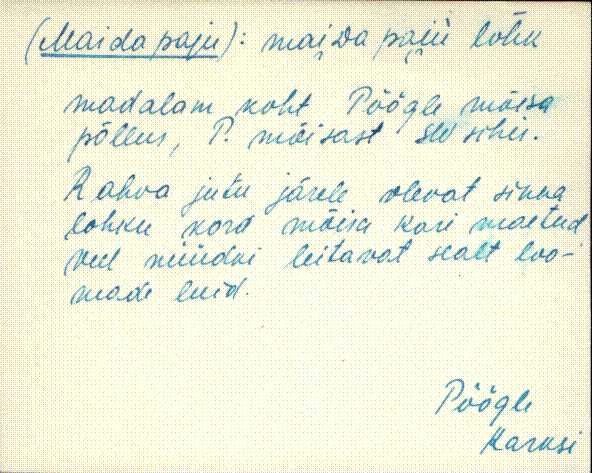 (Maida paju): mai̯da pai̯ü lõhk
madalam koht Pöögle mõisa
põllus, P. mõisast SW sihis.
Rahva jutu järele olevat sinna
lohku kord mõisa kari maetud
veel nüüdki leitavat sealt loo-
made luid.
Pöögle
Karksi